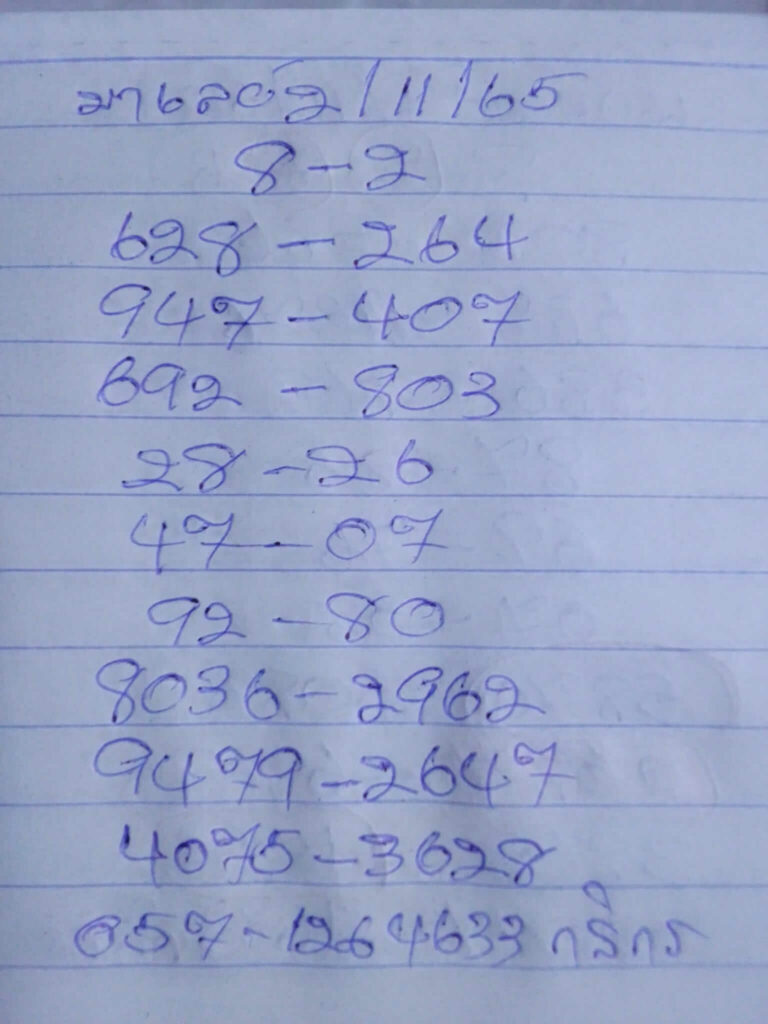 มาเลย์2/11/65
8-2
628-264
947-407
692-803
28-26
47-07
92-80
8036-2962
9479-2647
4075-3628
057-1264633 กริกร